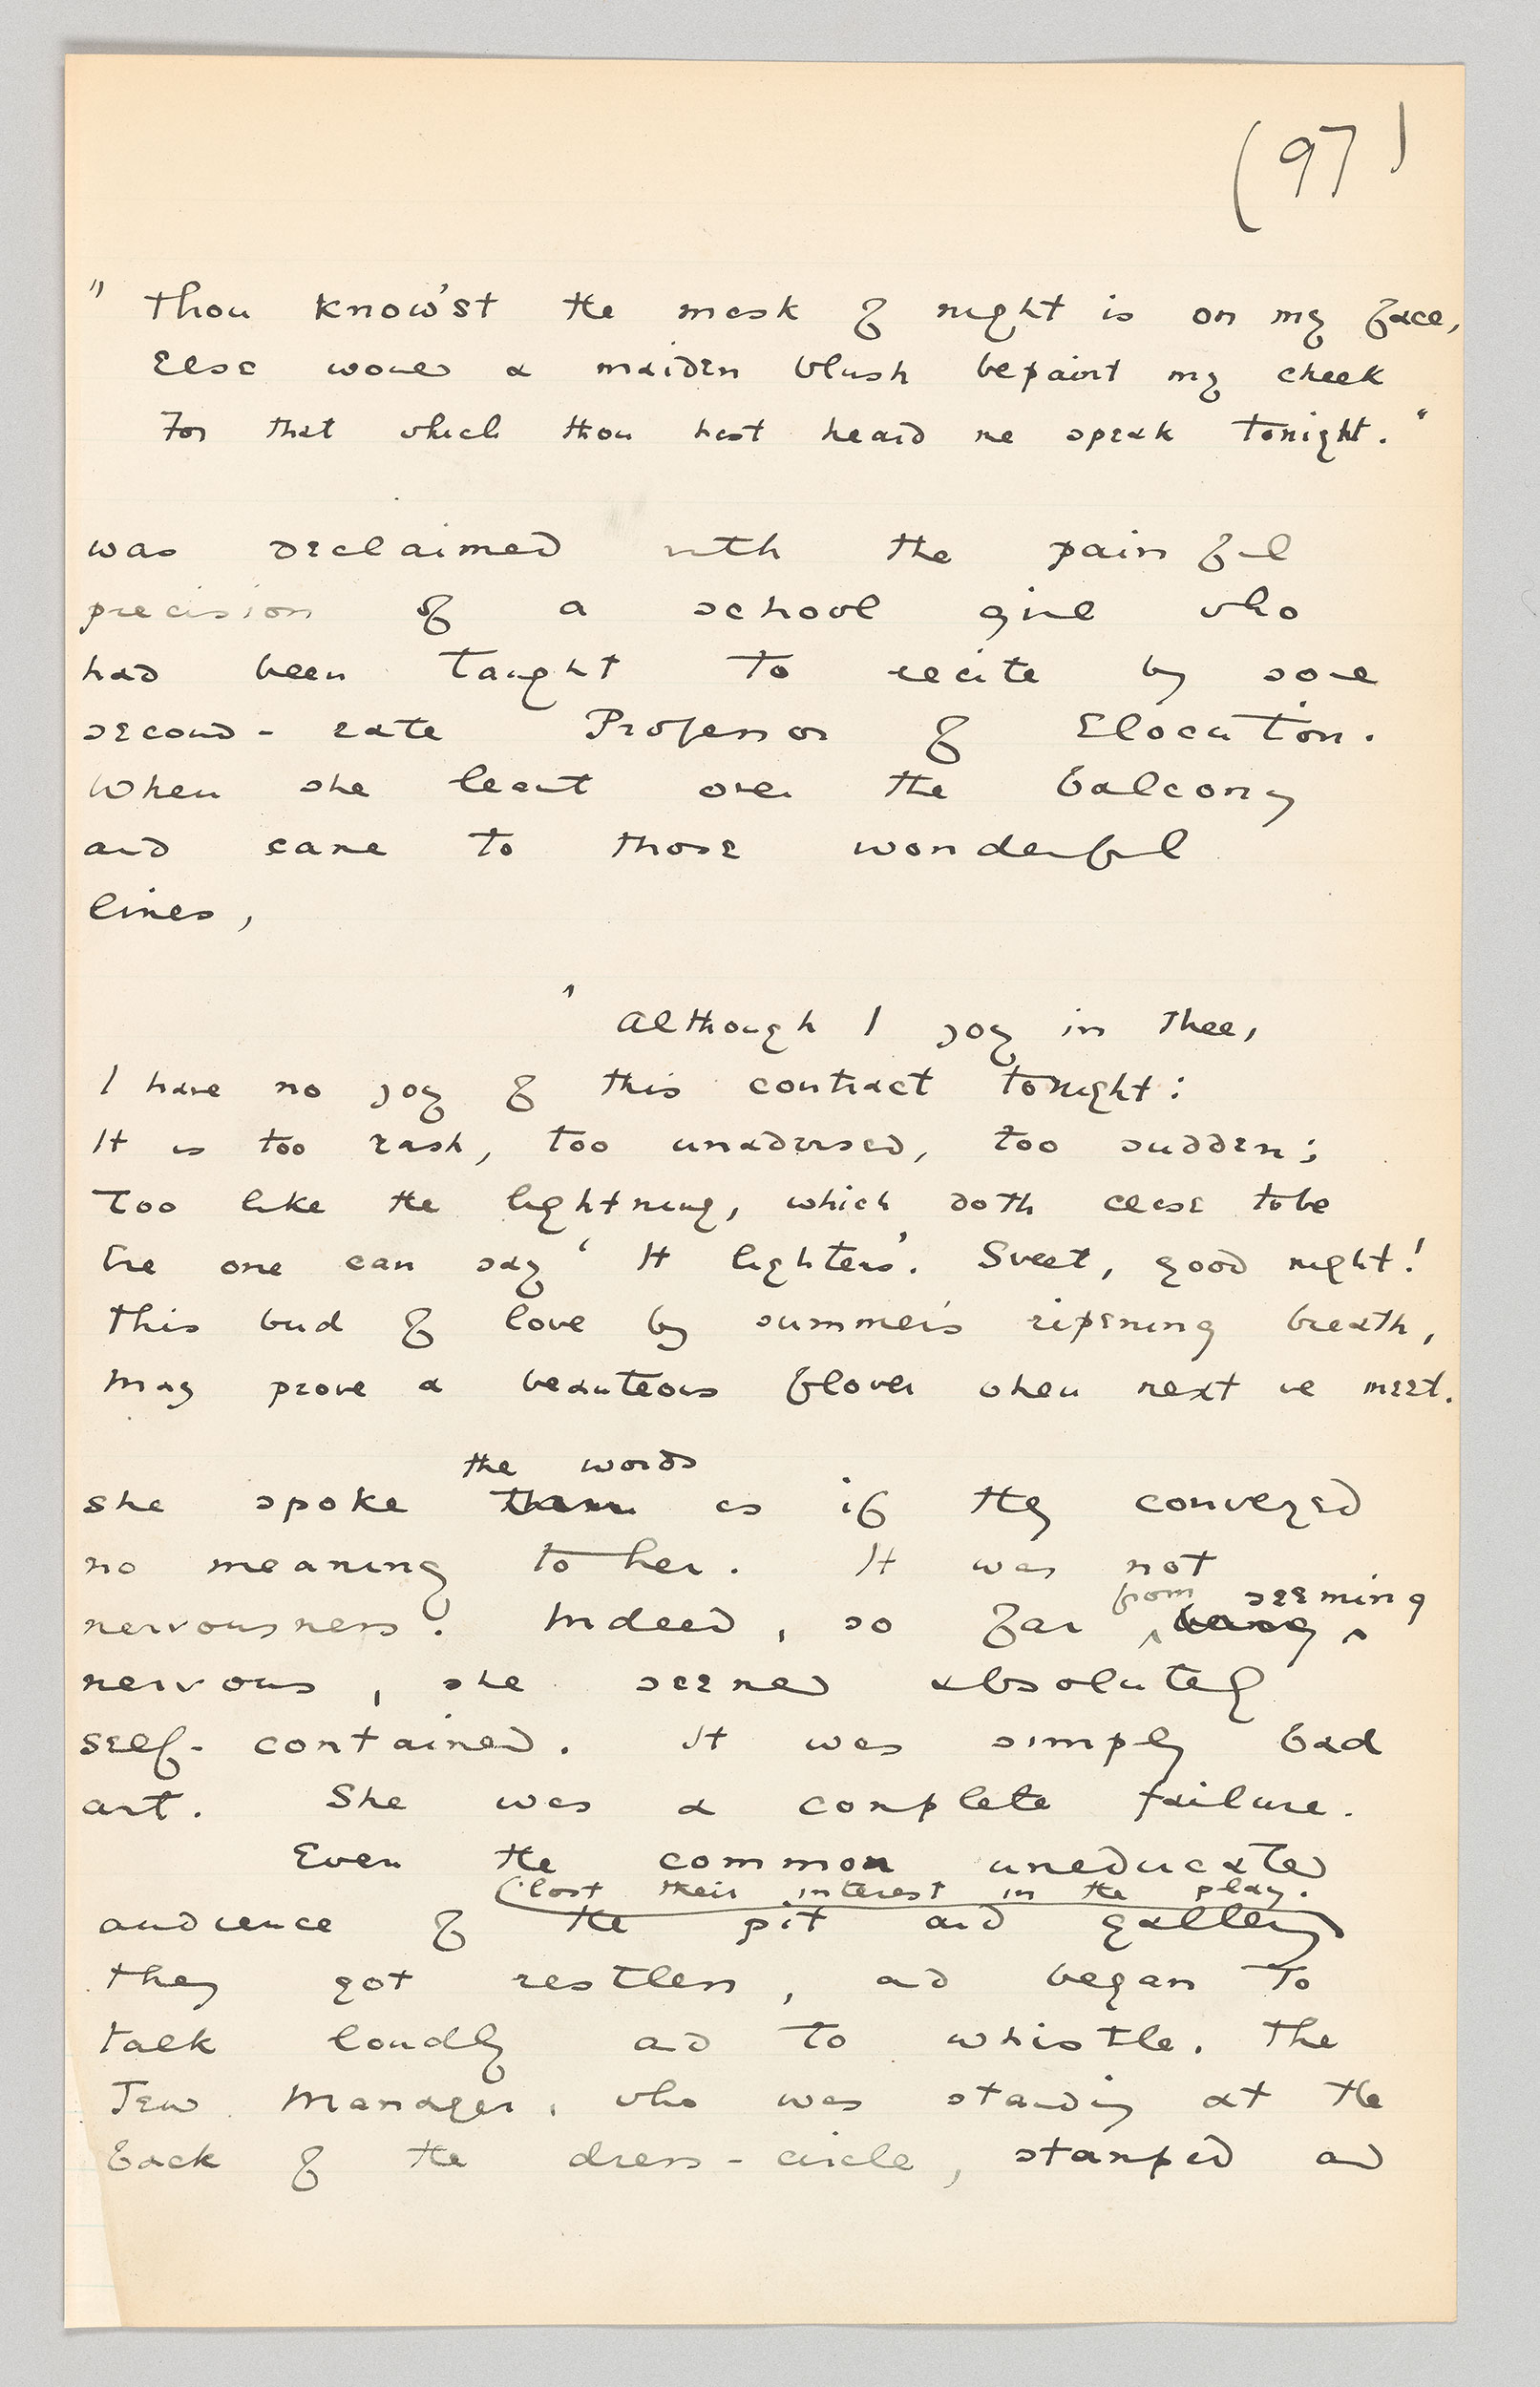 (97)
" Thou know'st the mask of night is on my face,
Else would a maiden blush bepaint my cheek
For that which thou hast heard me speak tonight. "
was declaimed with the painful
precision of a school girl who
had been taught to recite by some
second-rate Professor of Elocution.
When she leant over the balcony
and came to those wonderful
lines,
" Although I joy in thee,
I have no joy of this contract tonight:
It is too rash, too unadvised, too sudden;
Too like the lightning, which doth cease to be
Ere one can say 'It lightens'. Sweet, good night!
This bud of love by summer's ripening breath,
May prove a beauteous flower when next we meet.
the words
she spoke them as if they conveyed
no meaning to her. It was not
from seeming
nervousness. Indeed, so far being
nervous, she seemed absolutely
self-contained. It was simply bad
art. She was a complete failure.
Even the common uneducated
lost their interest in the play.
audience of the pit and gallery
they got restless, and began to
talk loudly and to whistle. The
Jew Manager, who was standing at the
back of the dress-circle, stamped and